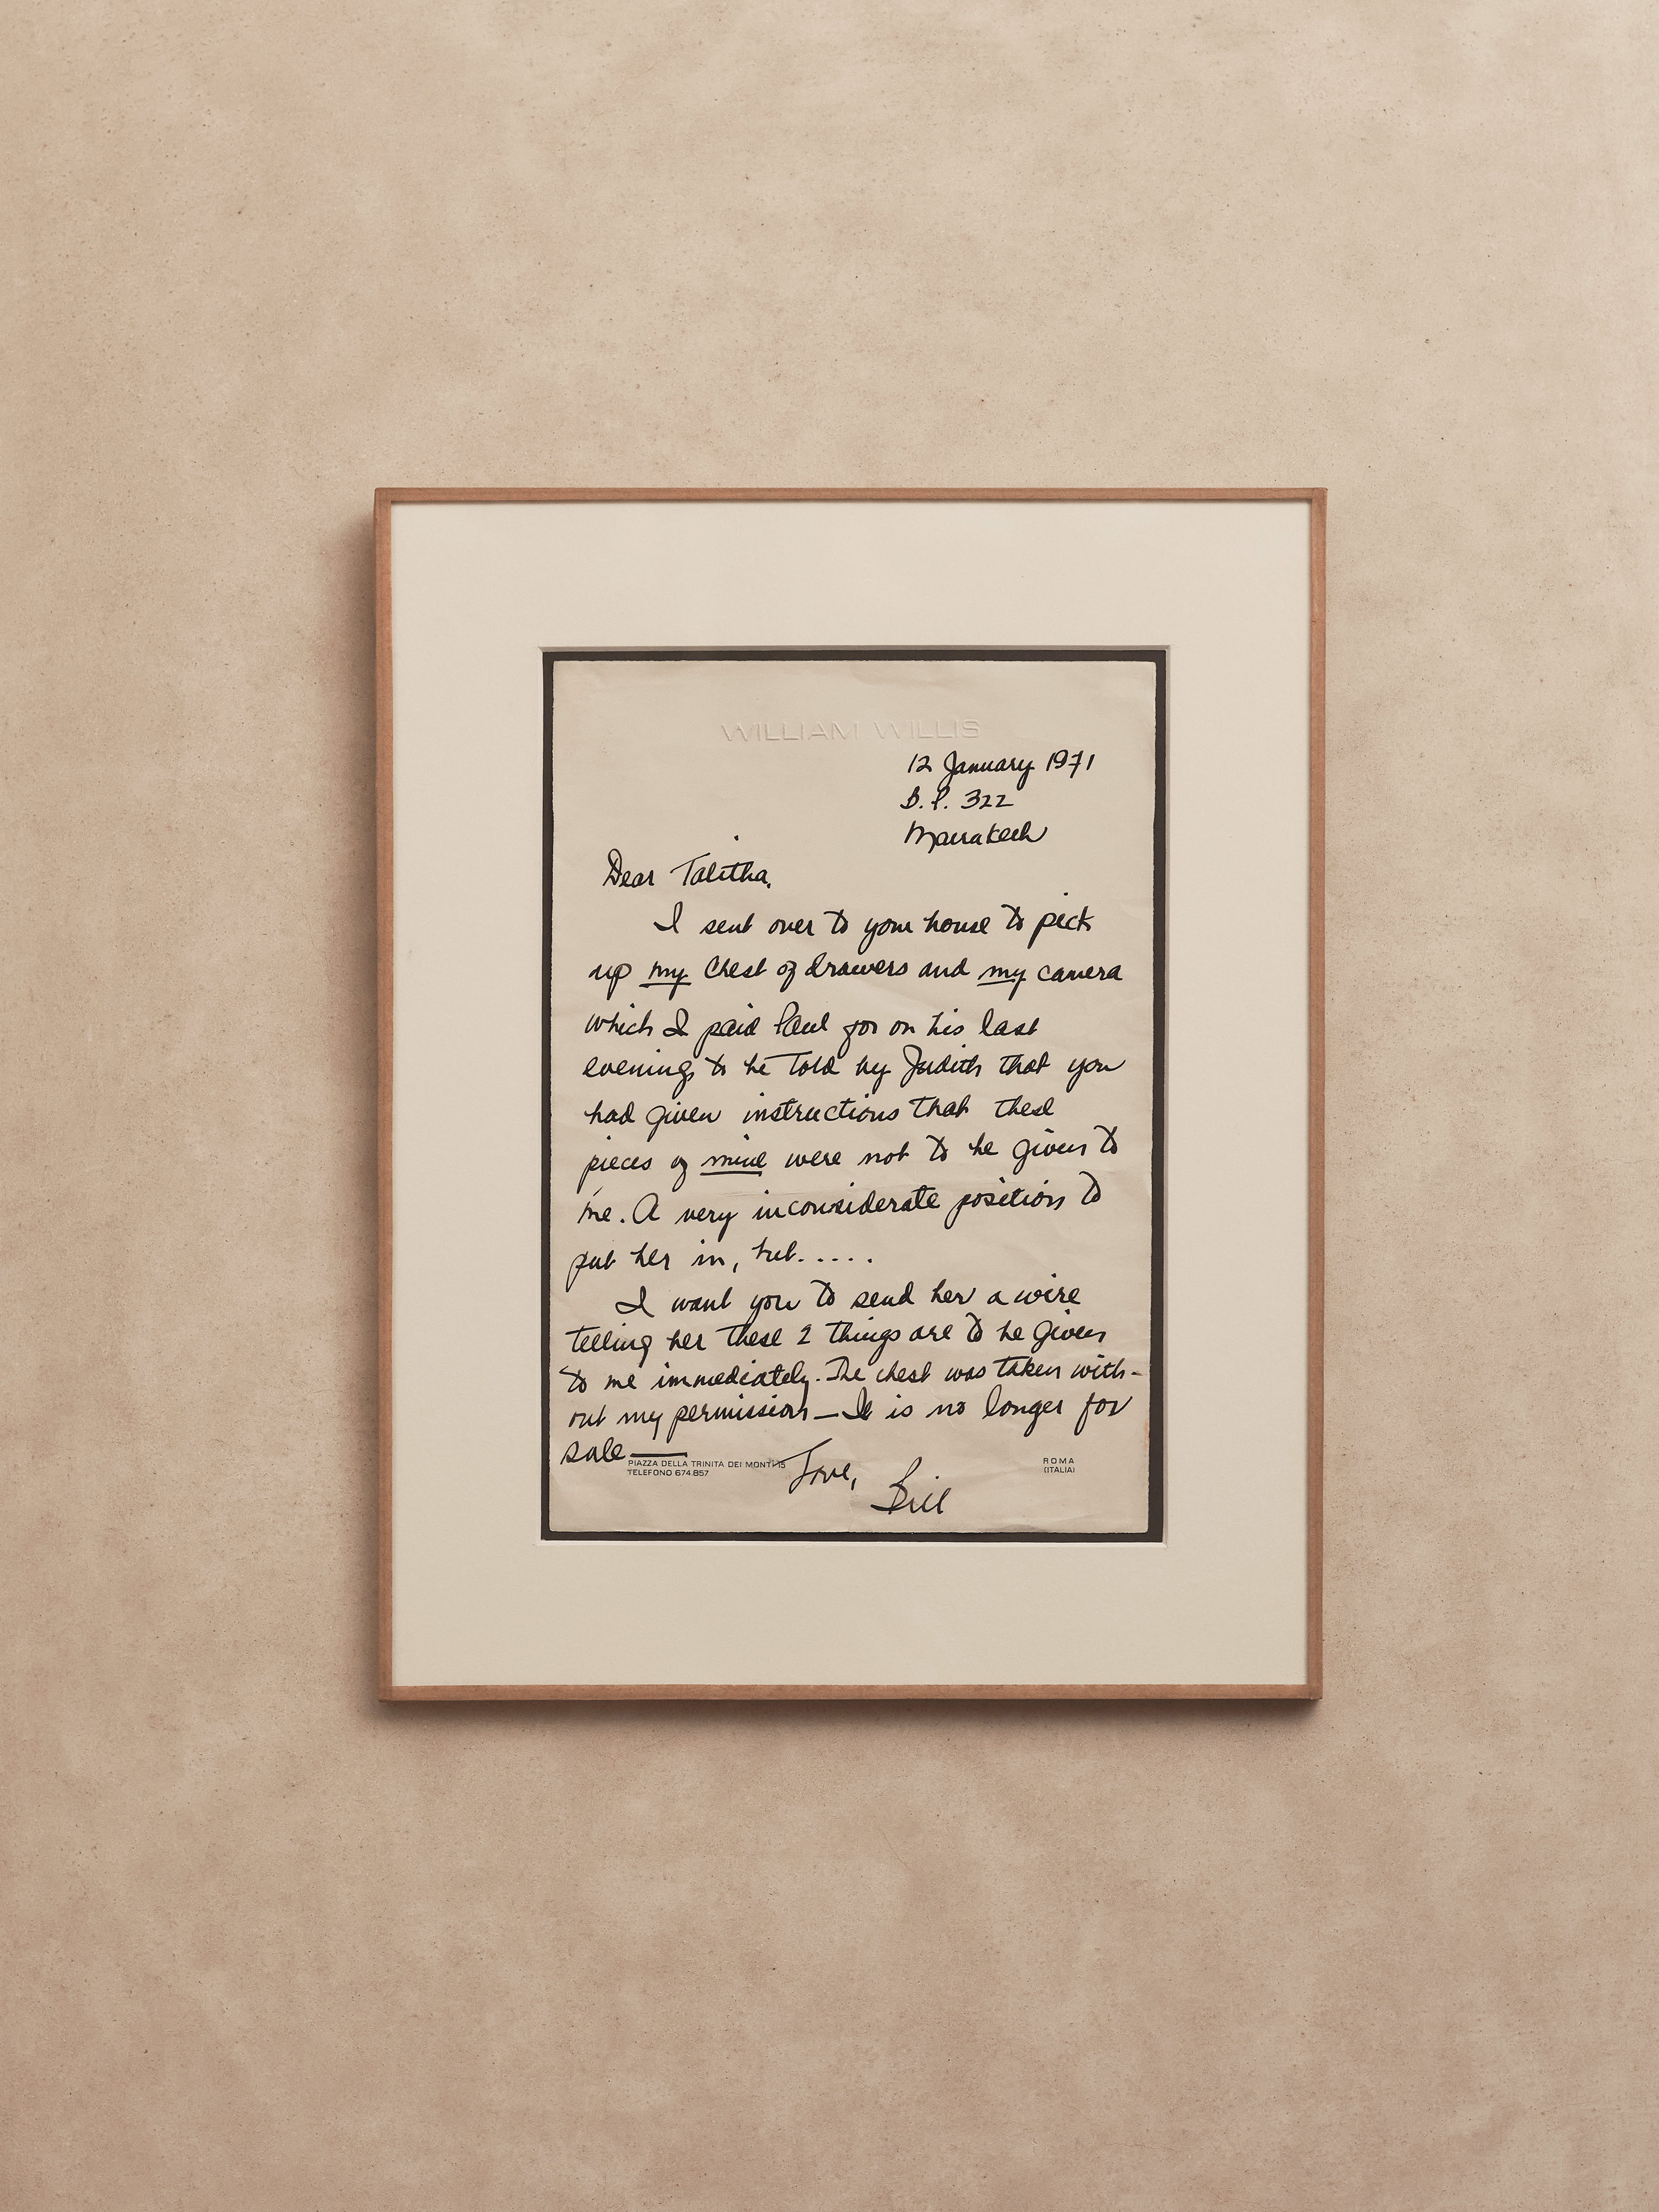 WILLIAM WILLIS
12 January 1971
B.P. 322
Marrakech
Dear Talitha,
I sent over to your house to pick
up my chest of drawers and my camera
which I paid Paul for on his last
evening to be told by Judith that you
had given instructions that these
pieces of mine were not to be given to
me. A very inconsiderate position to
put her in, but.....
I want you to send her a wire
telling her these 2 things are to be given
to me immediately. The chest was taken with-
out my permission — It is no longer for
sale —
Love,
Bill
PIAZZA DELLA TRINITA DEI MONTI 15
TELEFONO 674.857
ROMA
(ITALIA)